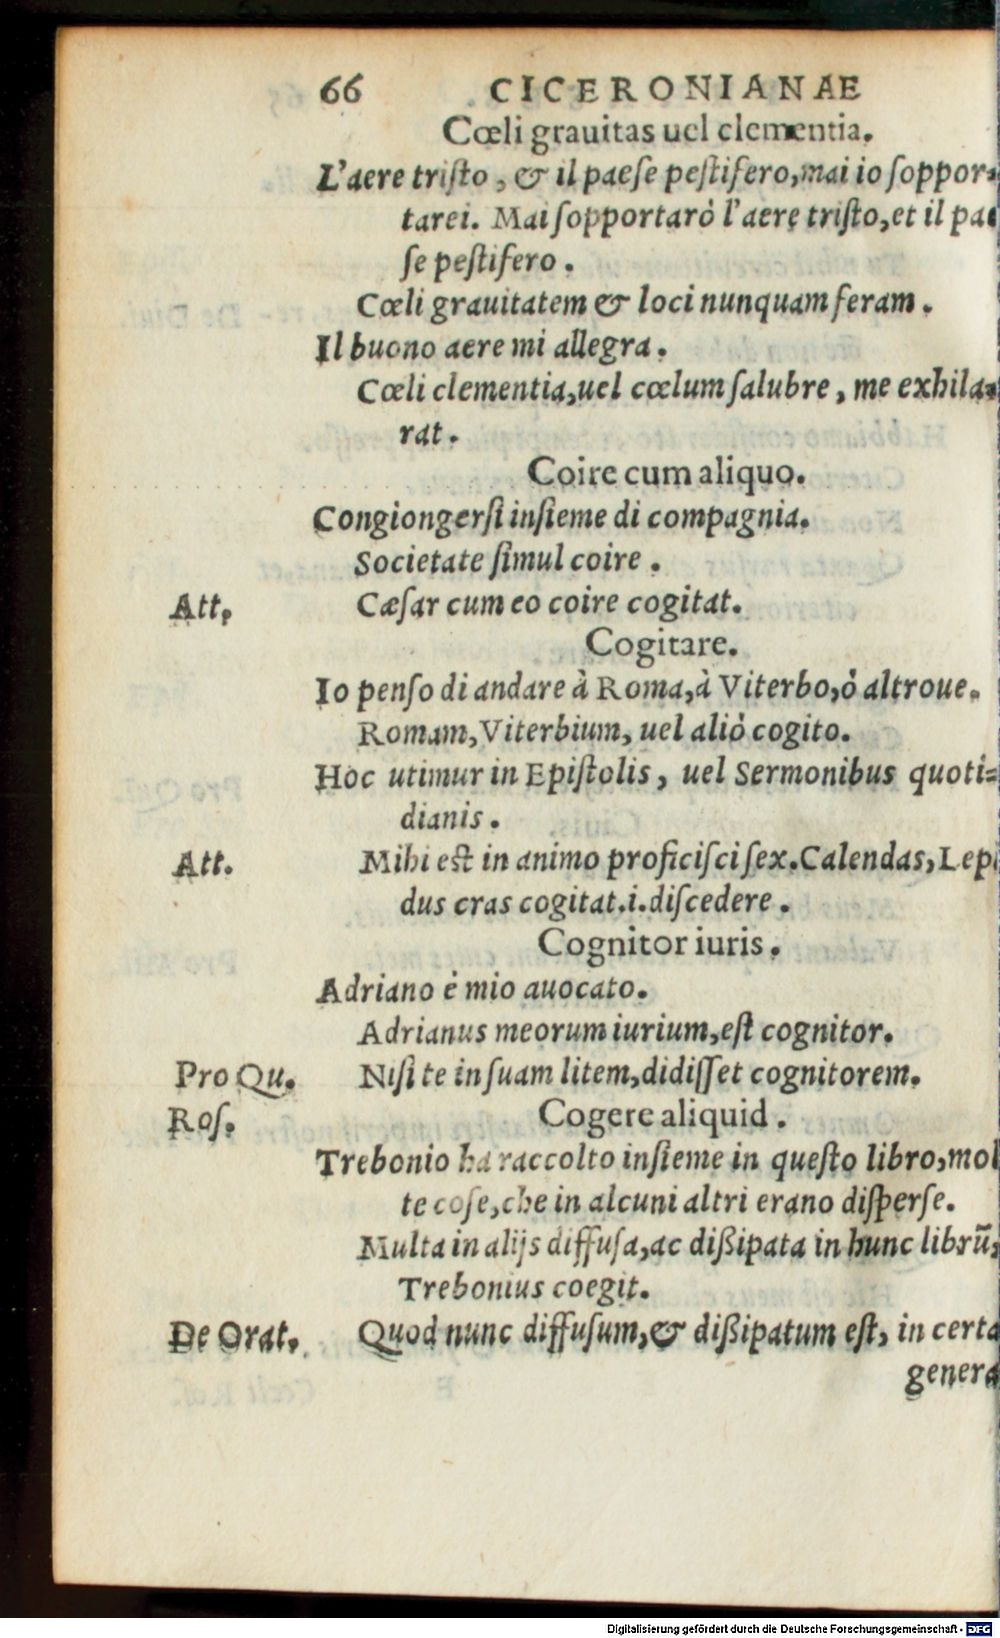 66 CICERONIANAE
Cœli grauitas uel clementia.
L'aere tristo, & il paese pestifero, mai io soppor-
tarei. Mai sopportarò l'aere tristo, et il pae
se pestifero.
Cœli grauitatem & loci nunquam feram.
Il buono aere mi allegra.
Cœli clementia, uel cœlum salubre, me exhila-
rat.
Coire cum aliquo.
Congiongersi insieme di compagnia.
Societate simul coire.
Att. Cæsar cum eo coire cogitat.
Cogitare.
Io penso di andare à Roma, à Viterbo, ò altroue.
Romam, Viterbium, uel aliò cogito.
Hoc utimur in Epistolis, uel Sermonibus quoti-
dianis.
Att. Mihi est in animo proficisci sex. Calendas, Lepi
dus cras cogitat.i.discedere.
Cognitor iuris.
Adriano è mio auocato.
Adrianus meorum iurium, est cognitor.
Pro Qu. Nisi te in suam litem, didisset cognitorem.
Ros. Cogere aliquid.
Trebonio ha raccolto insieme in questo libro, mol
te cose, che in alcuni altri erano disperse.
Multa in alijs diffusa, ac dißipata in hunc librũ,
Trebonius coegit.
De Orat. Quod nunc diffusum, & dißipatum est, in certa
genera
Digitalisierung gefördert durch die Deutsche Forschungsgemeinschaft - DFG